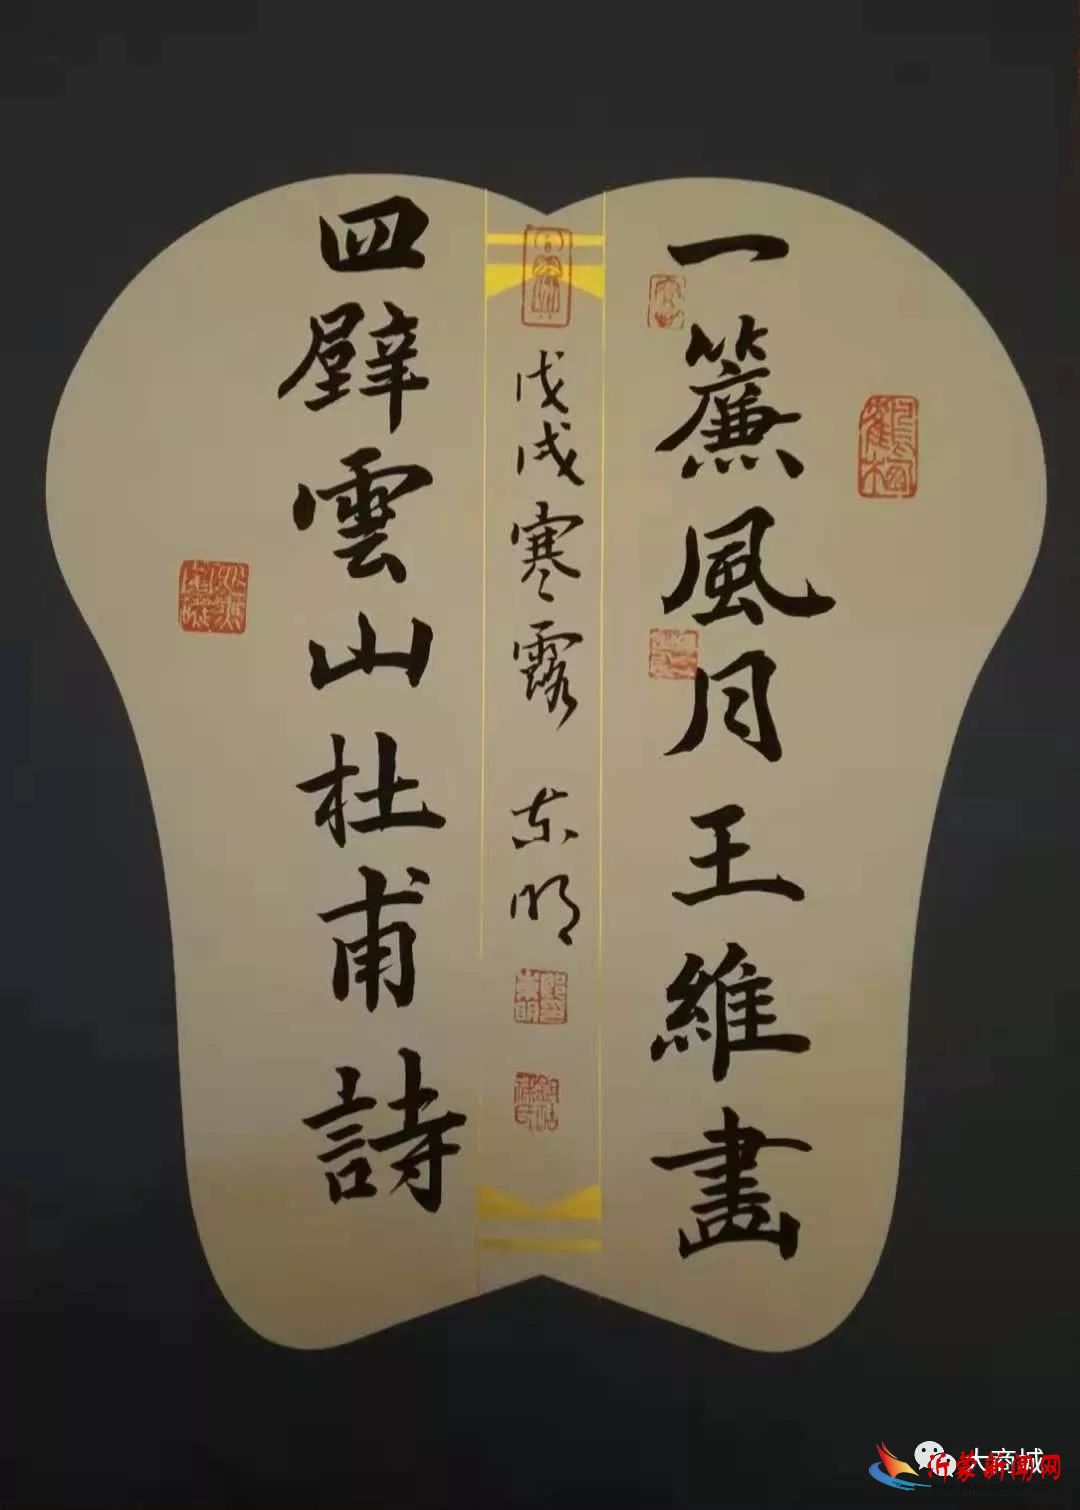 一簾風月王維畫
戊戌寒露 东明
四壁雲山杜甫詩
大商城
沂蒙新闻网